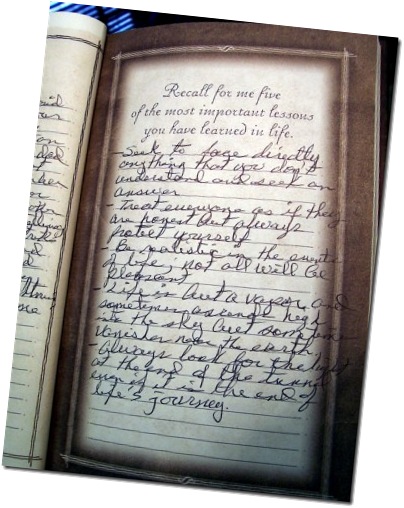 Recall for me five
of the most important lessons
you have learned in life.
- Seek to face directly
anything that you don't
understand and seek an
answer
- Treat everyone as if they
are honest but always
protect yourself
- Be realistic in the events
of life; not all will be
pleasant.
- Life is but a vapor and
sometimes ascends high
into the sky but sometime
vanishes near the earth.
- Always look for the light
at the end of the tunnel
even if it is the end of
life's journey.